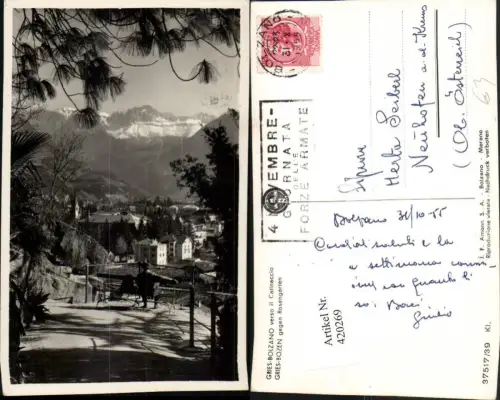 BOLZANO
31.10.55
4 NOVEMBRE -
GIORNATA
DELLE
FORZE ARMATE
Signora
Herta Seiberl
Neuhofen a. d. Krems
(Ob. Österreich)
Bolzano 31/10-55
Cordiali saluti e la
settimana
quanto
so. Baci
Giulio
Artikel Nr.
420269
GRIES-BOLZANO verso il Catinaccio
GRIES-BOZEN gegen Rosengarten
J. F. Amonn S. A. Bolzano - Merano
Riproduzione vietata - Nachdruck verboten
37517/39 Kl.
63